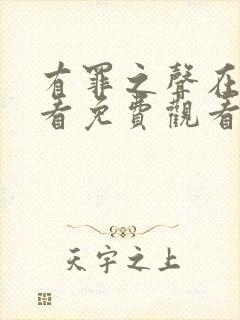 有罪之聲在
看免費觀看
天宇之上